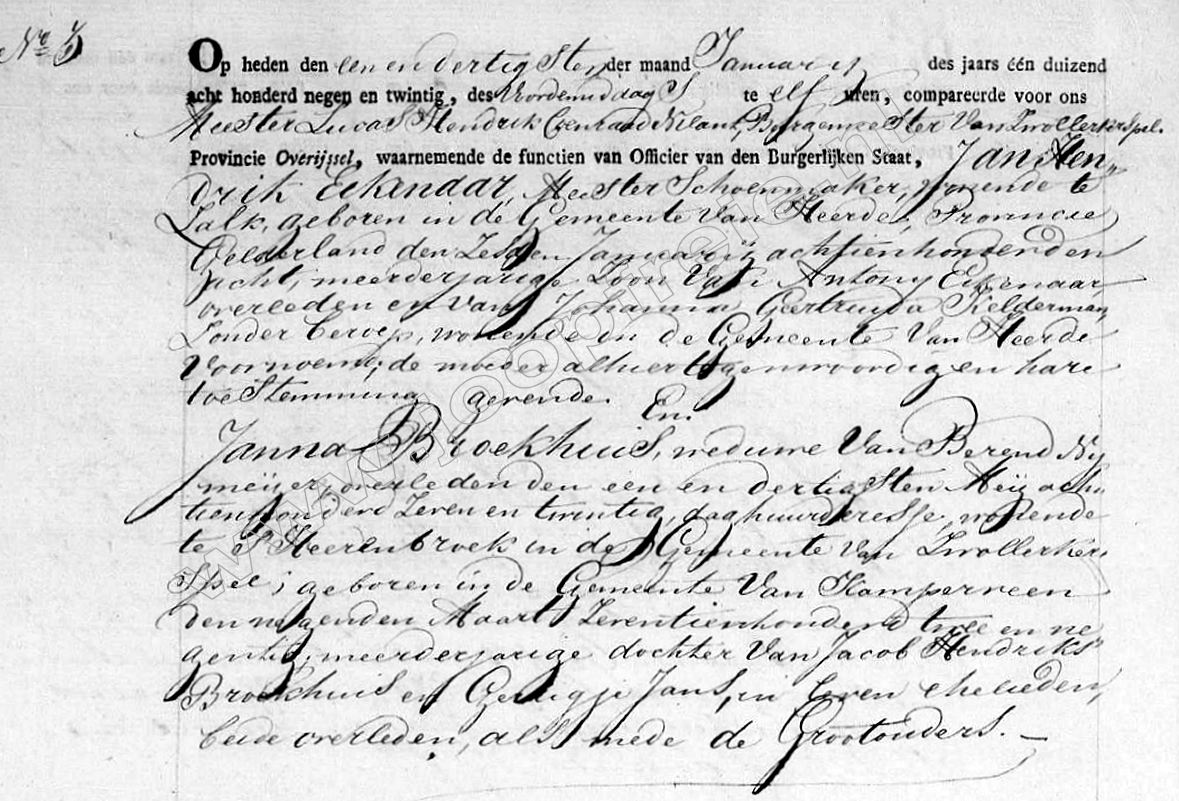 No 3
Op heden den een en dertigsten der maand Januarij des jaars één duizend
acht honderd negen en twintig, des voordemiddags te elf uren, compareerde voor ons
Meester Lucas Hendrik Coenraad Nilant, Burgemeester van Zwollerkerspel.
Provincie Overijssel, waarnemende de functien van Officier van den Burgerlijken Staat, Jan Hen
drik Eekenaar, Meester Schoenmaker, wonende te
Zalk, geboren in de Gemeente van Heerde, Provincie
Gelderland den zesden Januarij achttienhonderd en
acht, meerderjarige Zoon van Antony Eekenaar
overleden en van Johanna Geertruida Kelderman,
zonder beroep, wonende in de Gemeente van Heerde
voornoemd, de moeder alhier tegenwoordig en hare
toestemming gevende. En
Janna Broekhuis, weduwe van Berend Ny
meijer, overleden den een en dertigsten Meij ach
tienhonderd zeven en twintig, daghuurderesse, wonende
te s'Heerenbroek in de Gemeente van Zwollerker
spel; geboren in de Gemeente van Kamperveen
den negenden Maart zeventienhonderd twee en ne
gentig, meerderjarige dochter van Jacob Hendriks
Broekhuis en Jans, in leven ehelieden,
beide overleden, als mede de Grootouders. —
www.joopnreiem.nl